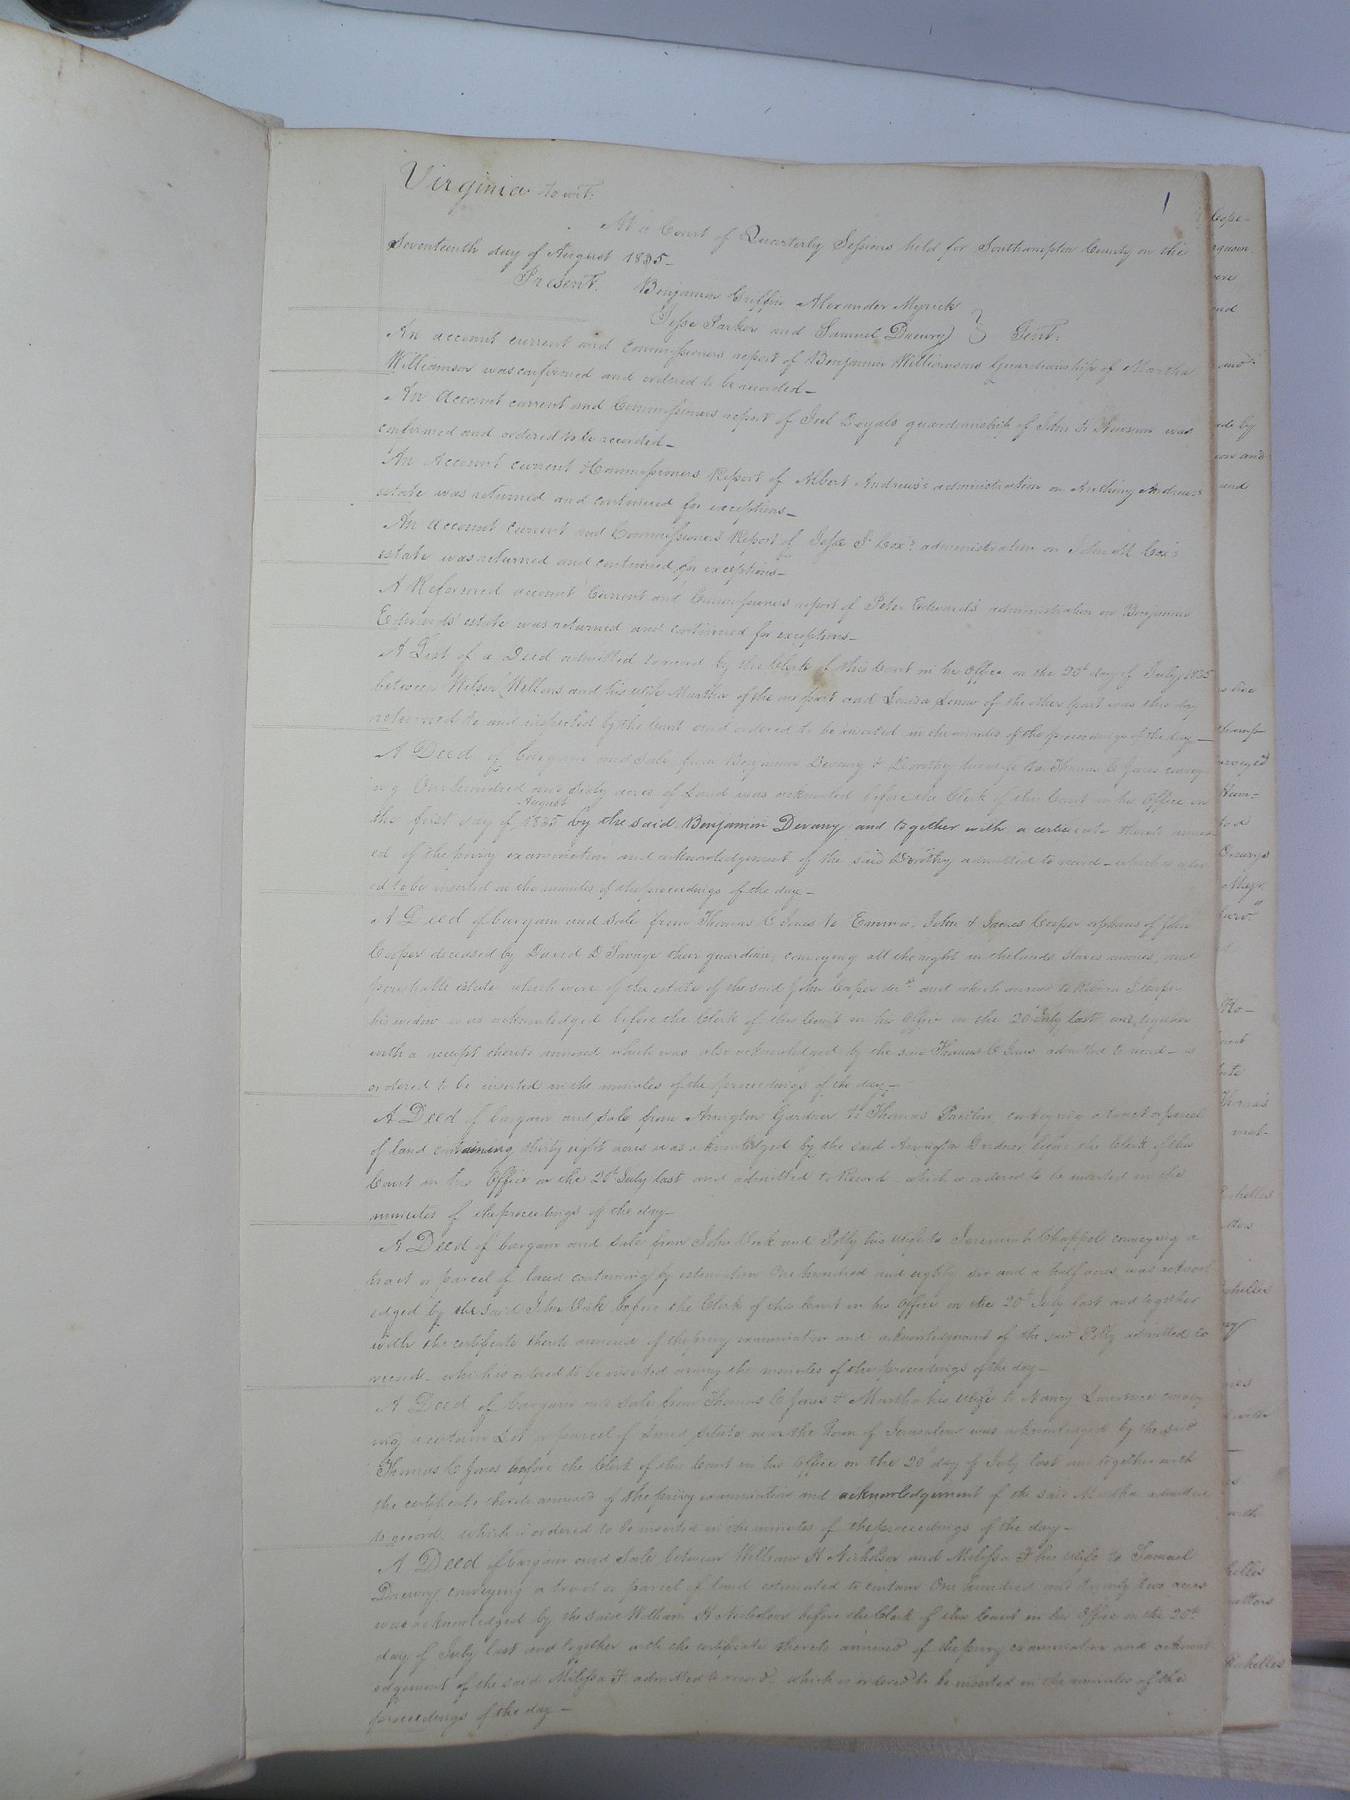 1
Virginia to wit:
At a Court of Quarterly Sessions held for Southampton County on the
Seventeenth day of August 1835-
Present. Benjamin Griffin Alexander Myrick
Jesse Parker and Samuel Drewry } Gent.
An account current and Commissioners report of Benjamin Williamsons Guardianship of Martha
Williamson was confirmed and ordered to be recorded-
An Account current and Commissioners report of Joel guardianship of John was
confirmed and ordered to be recorded-
An Account current & Commissioners Report of Albert Andrews's administration on Anthony Andrews
estate was returned and continued for exceptions-
An account current and Commissioners Report of Jesse Cox's administration on Cox's
estate was returned and continued for exceptions-
A Reformed account Current and Commissioners report of Peter Edwards' administration on Benjamin
Edwards' estate was returned and continued for exceptions-
A List of a Deed admitted to record by the Clerk of this Court in his Office on the 20th day of July 1835
between and his wife Martha of the one part and of the other part was this day
returned to and inspected by the Court and ordered to be inserted in the minutes of the proceedings of the day-
A Deed of bargain and sale from Benjamin Devany & Dorothy his wife to Thomas C Jones convey-
ing One hundred and sixty acres of Land was acknowledged before the Clerk of this Court in his Office on
the first day of August 1835 by the said Benjamin Devany and together with a certificate thereto annex-
ed of the privy examination and acknowledgment of the said Dorothy admitted to record- which is order-
ed to be inserted in the minutes of the proceedings of the day-
A Deed of bargain and sale from Thomas C Jones to Emma, John & James Cooper orphans of John
Cooper deceased by David D Savage their guardian, conveying all the right in the lands slaves monies, and
perishable estate which were of the estate of the said John Cooper decd and which
his widow was acknowledged before the Clerk of this Court in his Office on the 20 July last and together
with a receipt thereto annexed which was also acknowledged by the said Thomas C Jones admitted to record- is
ordered to be inserted in the minutes of the proceedings of the day-
A Deed of bargain and sale from Arrington Gardner to Thomas conveying a tract or parcel
of land containing thirty eight acres was acknowledged by the said Arrington Gardner before the Clerk of this
Court in his Office on the 20th July last and admitted to Record which is ordered to be inserted in the
minutes of the proceedings of the day-
A Deed of bargain and sale from John Vick and Polly his wife to Jeremiah Chappell conveying a
tract or parcel of land containing by estimation One hundred and eighty six and a half acres was acknowl-
edged by the said John Vick before the Clerk of this Court in his Office on the 20th July last and together
with the certificate thereto annexed of the privy examination and acknowledgment of the said Polly admitted to
record- which is ordered to be inserted among the minutes of the proceedings of the day-
A Deed of bargain and sale from Thomas C Jones & Martha his wife to Nancy Lawrence convey-
ing a certain Lot or parcel of Land situate near the Town of Jerusalem was acknowledged by the said
Thomas C Jones before the Clerk of this Court in his Office on the 20th day of July last and together with
the certificate thereto annexed of the privy examination and acknowledgement of the said Martha admitted
to record, which is ordered to be inserted in the minutes of the proceedings of the day-
A Deed of bargain and sale between William H Nicholson and Milissa F his wife to Samuel
Drewry conveying a tract or parcel of land estimated to contain One hundred and twenty two acres
was acknowledged by the said William H Nicholson before the Clerk of this Court in his Office on the 20th
day of July last and together with the certificate thereto annexed of the privy examination and acknowl-
edgement of the said Milissa F admitted to record, which is ordered to be inserted in the minutes of the
proceedings of the day-